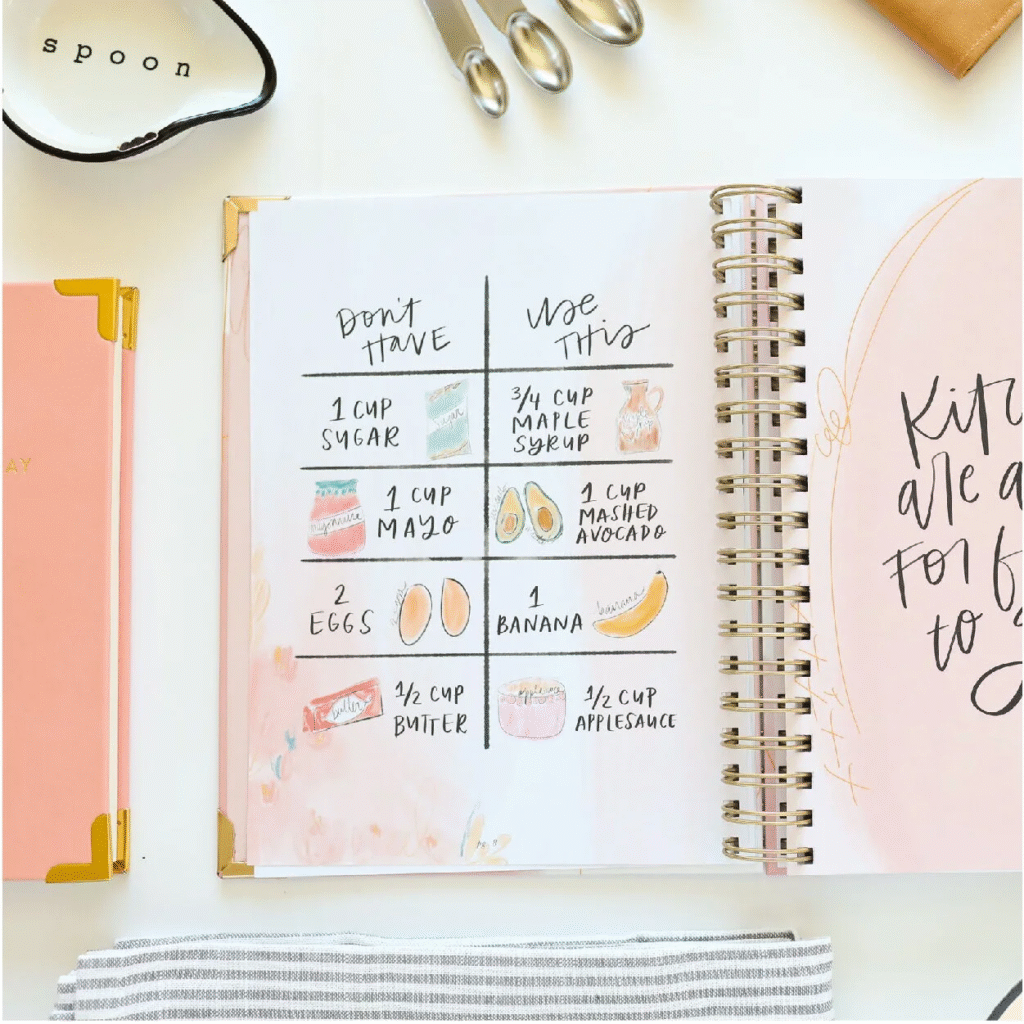 spoon
AY
Don't
Have
Use
This
1 CUP
SUGAR
sugar
3/4 CUP
MAPLE
SYRUP
mayonnaise
1 CUP
MAYO
1 CUP
MASHED
AVOCADO
2
EGGS
eggs
1
BANANA
banana
butter
1/2 CUP
BUTTER
applesauce
1/2 CUP
APPLESAUCE
Kitc
are a
For f
to